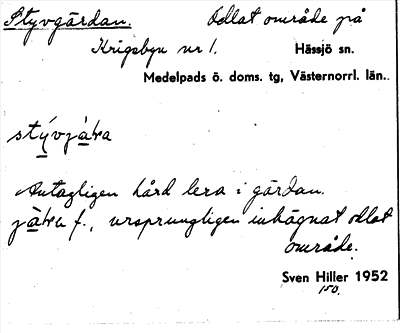 Styvgärdan. Odlat område på
Krigsbyn nr 1. Hässjö sn.
Medelpads ö. doms. tg, Västernorrl. län.
stývjàka
Antagligen hård lera i gärdan.
jàka f., ursprungligen inhägnat odlat
område.
Sven Hiller 1952
150.